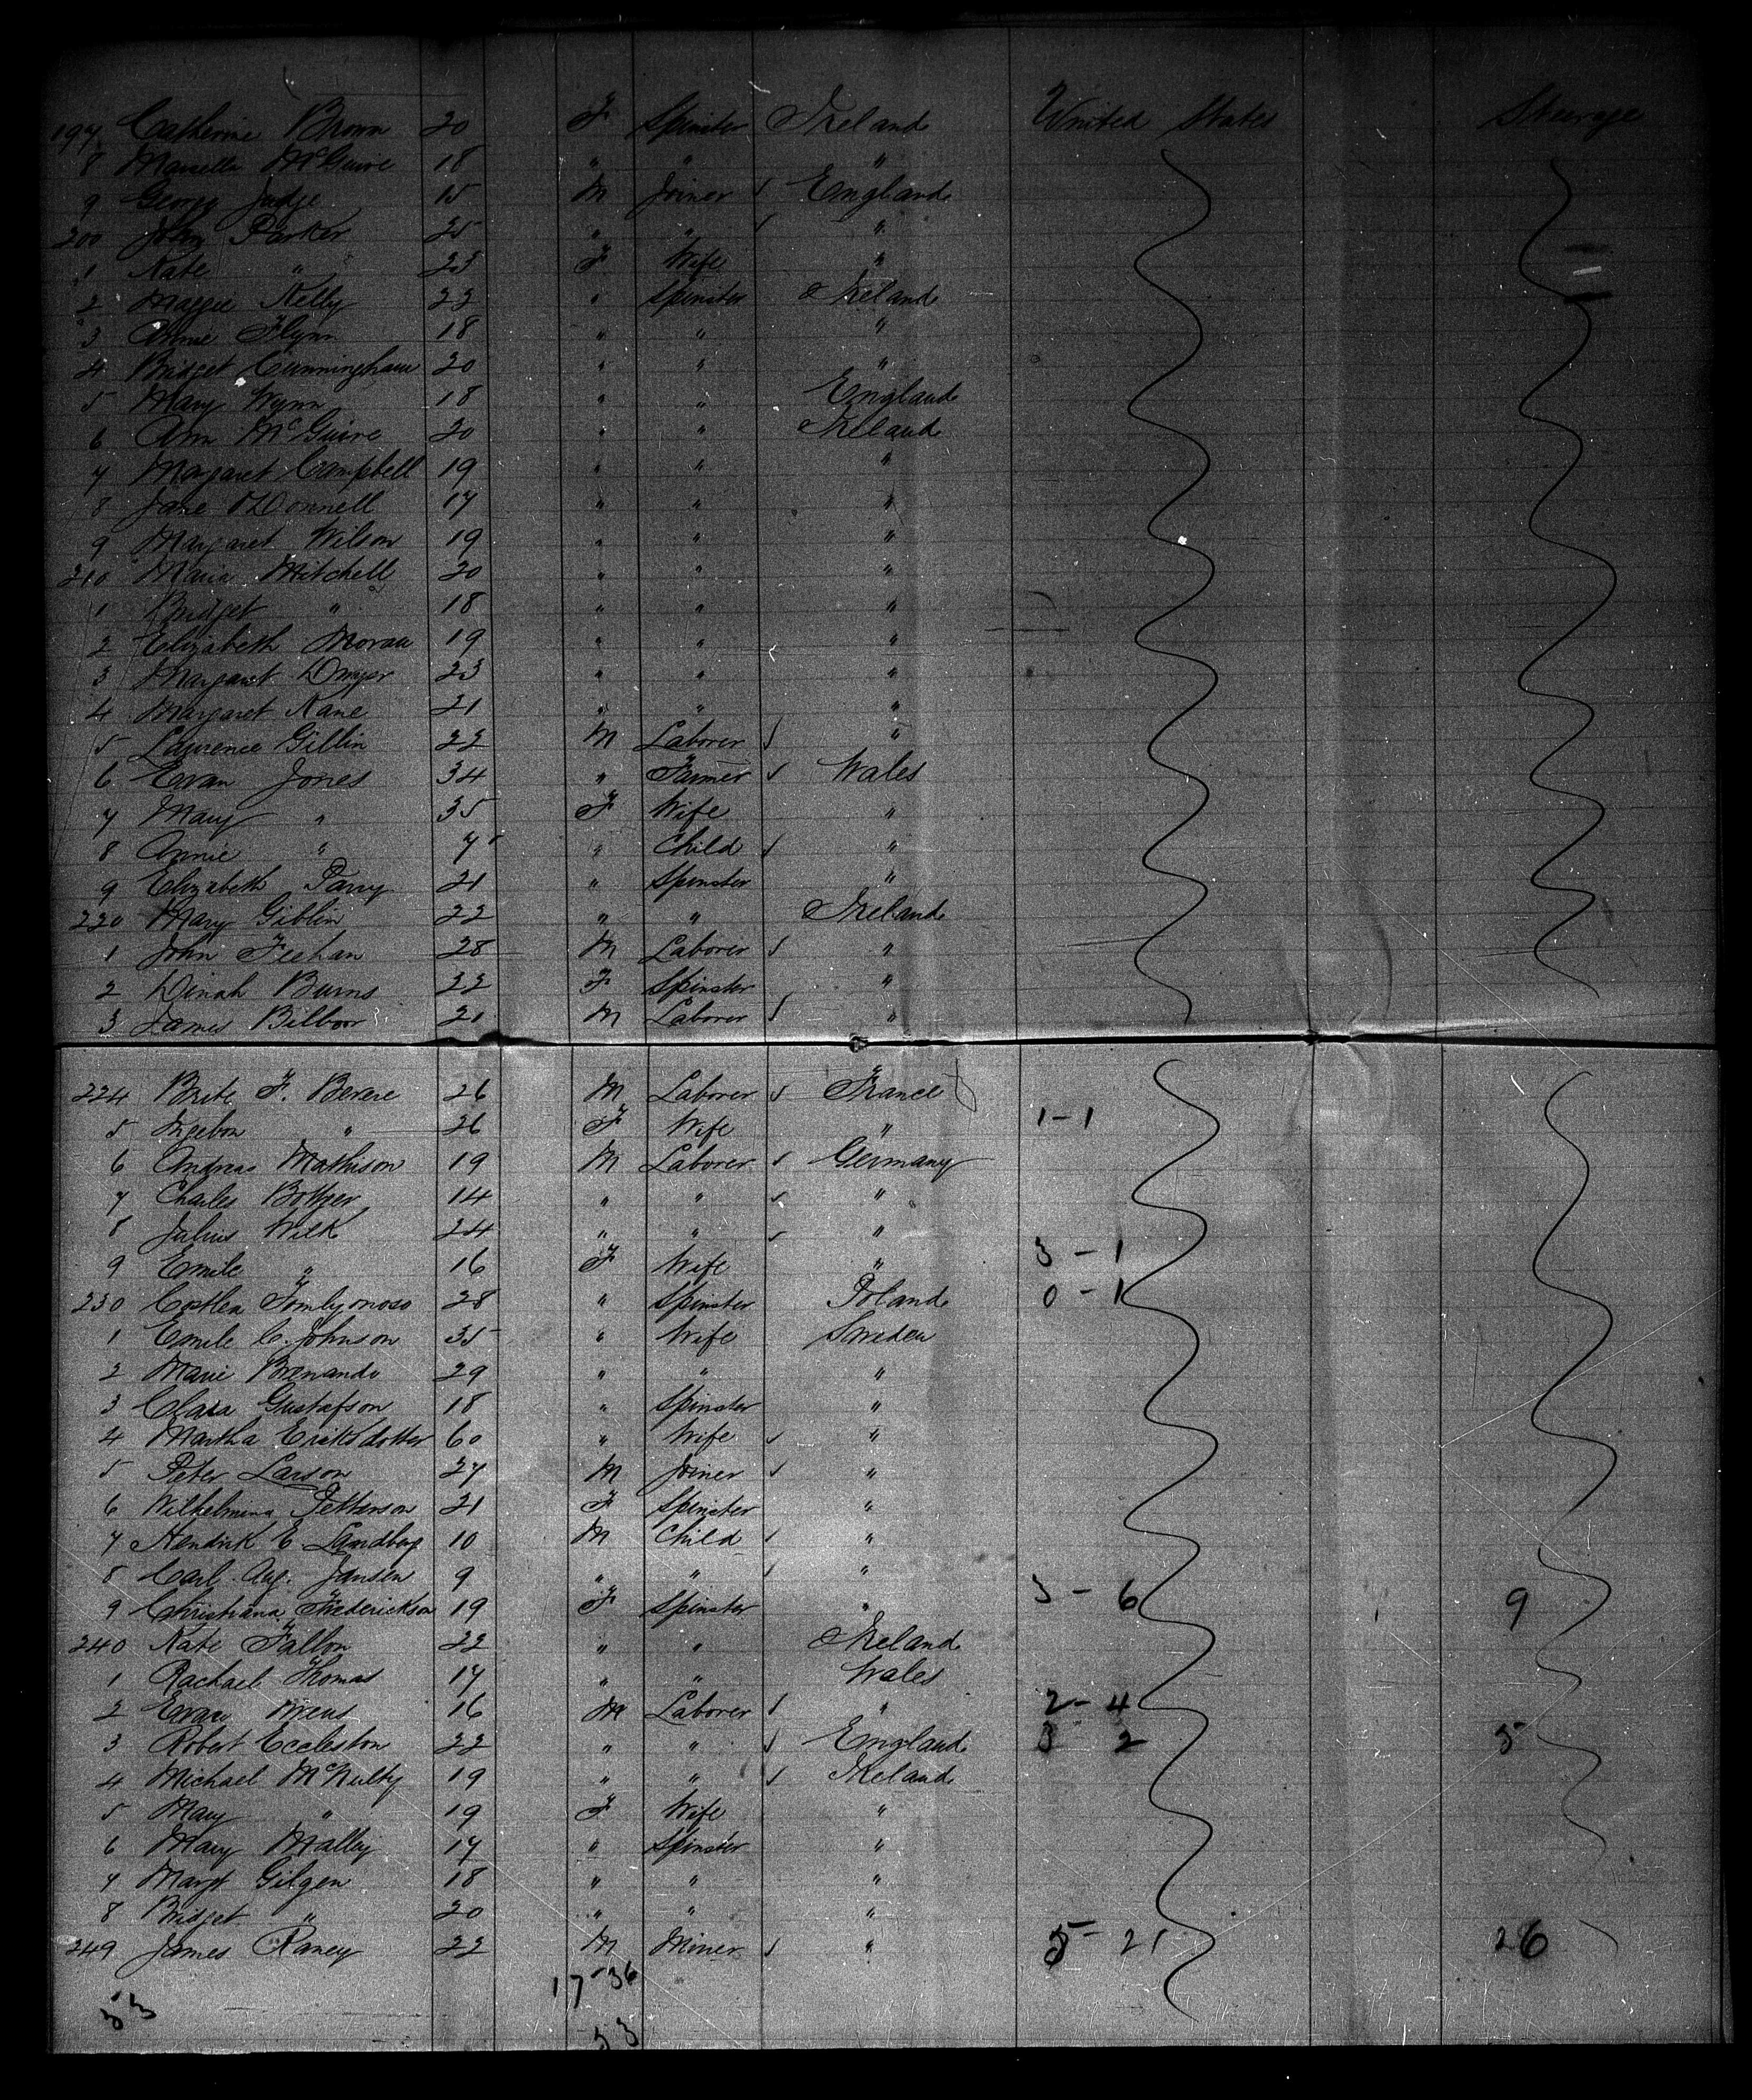 197 Catherine Brown 20 F Spinster Ireland United States Steerage
8 Marcella McGuire 18 " " "
9 George Judge 15 M Joiner ✓ England
200 John Parker 25 " " ✓ "
1 Kate " 23 F Wife "
2 Maggie Kelly 22 " Spinster Ireland
3 Annie Flynn 18 " " "
4 Bridget Cunningham 20 " " "
5 Mary Wynn 18 " " England
6 Ann McGuire 20 " " Ireland
7 Margaret Campbell 19 " " "
8 Jane O'Donnell 17 " " "
9 Margaret Wilson 19 " " "
210 Maria Mitchell 20 " " "
1 Bridget " 18 " " "
2 Elizabeth Moran 19 " " "
3 Margaret Dwyer 23 " " "
4 Margaret Kane 21 " " "
5 Lawrence Gillin 22 M Laborer ✓ "
6 Evan Jones 34 " Farmer ✓ Wales
7 Mary " 35 F Wife "
8 Annie " 7 " Child ✓ "
9 Elizabeth Parry 21 " Spinster "
220 Mary Giblin 22 " " Ireland
1 John Feehan 28 M Laborer ✓ "
2 Dinah Burns 22 F Spinster "
3 James Bilboor 21 M Laborer ✓ "
224 Brite F. Berere 26 M Laborer ✓ France
5 Ingebon " 26 F Wife " 1-1
6 Andreas Mathison 19 M Laborer ✓ Germany
7 Charles Bottger 14 " " ✓ "
8 Julius Wilk 24 " " ✓ "
9 Emile " 16 F Wife " 3-1
230 28 " Spinster Poland 0-1
1 Emile C. Johnson 35 " Wife Sweden
2 Marie 29 " " "
3 Clara Gustafson 18 " Spinster "
4 Martha Eriksdotter 60 " Wife ✓ "
5 Peter Larson 27 M Joiner ✓ "
6 Wilhelmina Petterson 21 F Spinster "
7 Hendrik E. Landberg 10 M Child ✓ "
8 Carl Aug. Jansen 9 " " ✓ "
9 Christiana Frederickson 19 F Spinster " 3-6 9
240 Kate Fallon 22 " " Ireland
1 Rachael Thomas 17 " " Wales
2 Evan 16 M Laborer ✓ " 2-4
3 Robert Eccleston 22 " " ✓ England 3 2 5
4 Michael McNulty 19 " " ✓ Ireland
5 Mary " 19 F Wife "
6 Mary Malley 17 " Spinster "
7 Margt Gilgen 18 " " "
8 Bridget " 20 " " "
249 James Raney 22 M Miner ✓ " 5-21 26
17-36
53
53